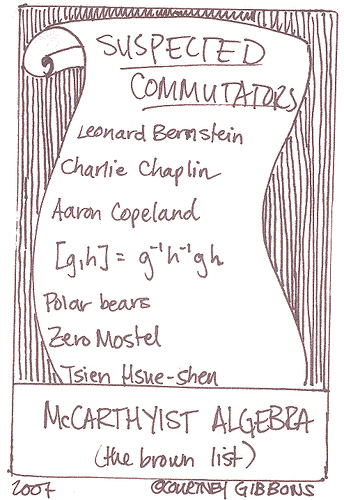 SUSPECTED
COMMUTATORS
Leonard Bernstein
Charlie Chaplin
Aaron Copeland
[g,h] = g⁻¹h⁻¹gh
Polar bears
Zero Mostel
Tsien Hsue-shen
McCARTHYIST ALGEBRA
(the brown list)
2007 ©COURTNEY GIBBONS